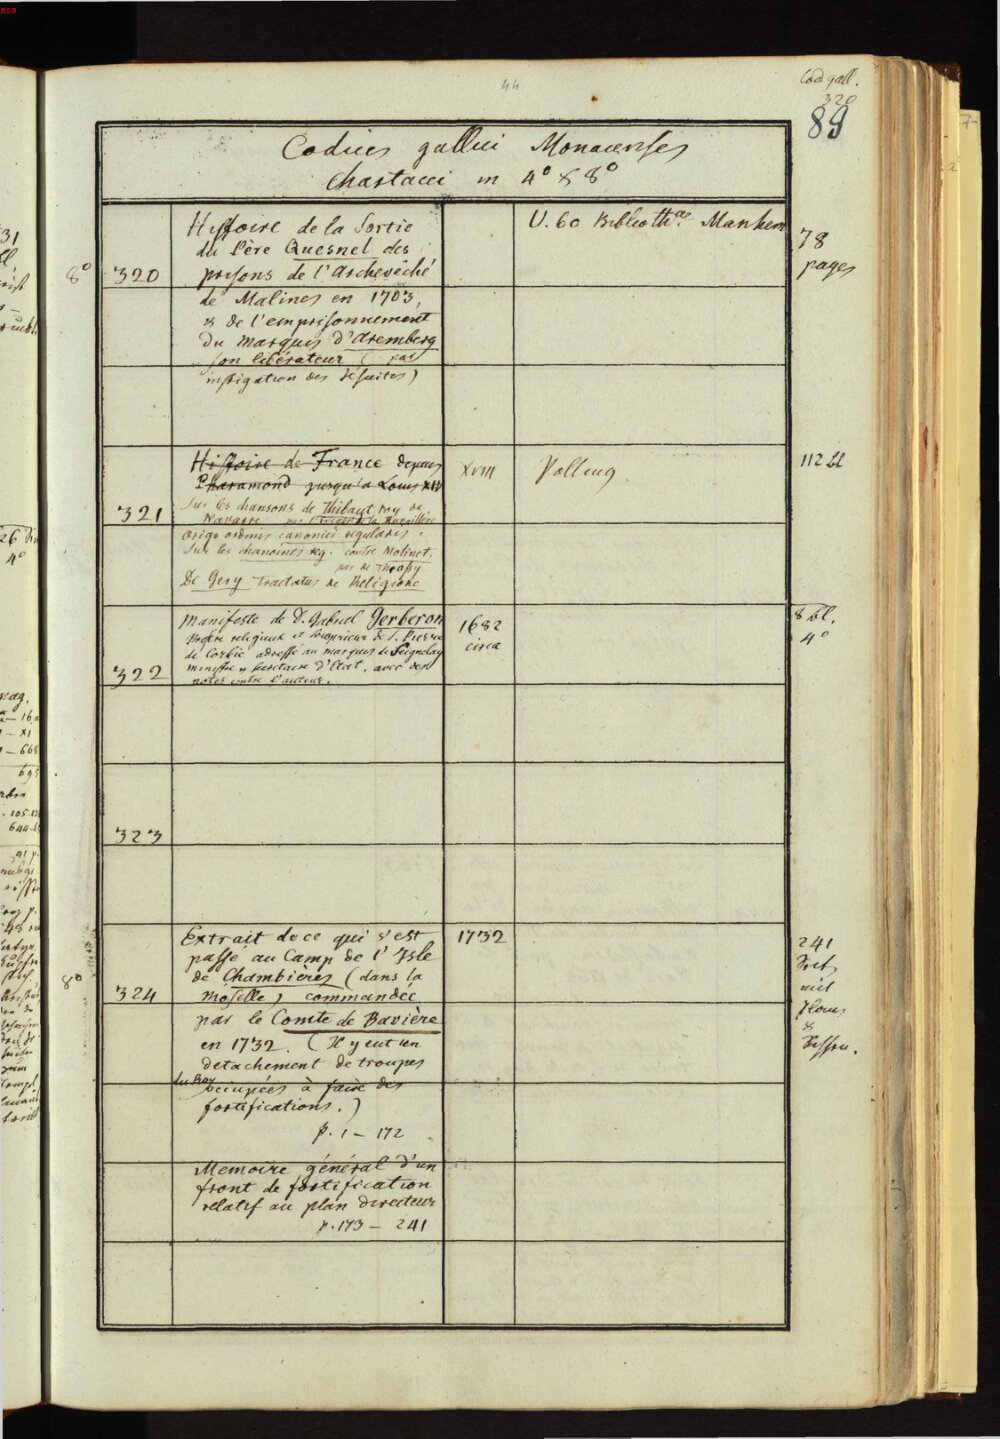 44
Cod gall.
320
89
Codices gallici Monacenses
Chartacei in 4° & 8°
8°
320
Histoire de la Sortie
du Père Quesnel des
prisons de l'Archevêché
de Malines en 1703,
& de l'emprisonnement
du Marquis d'Aremberg
son libérateur (par
instigation des Jésuites)
U. 60 Biblioth. Manhem
78
pages
321
Histoire de France depuis
Pharamond jusqu'a Louis XIV
Sur les chansons de Thibaut roy de
Navarre par l'Eveque de la Ravalliere
Origo ordinis canonici regularis.
Sur les chanoines reg. contre Molinet,
par de
De Gery Tractatus de Religione
XVIII
Polling
112 bl
322
Manifeste de D. Gabriel Gerberon
Prestre religieux et Souprieur de S. Pierre
de Corbie adressé au marquis de Seignelay
ministre & secretaire d'Etat. avec des
notes contre l'auteur.
1682
circa
8 bl.
4°
323
8°
324
Extrait de ce qui s'est
passé au Camp de l'Isle
de Chambières (dans la
Moselle) commandée
par le Comte de Bavière
en 1732. (Il y eut un
detachement de troupes
du Roy occupées à faire des
fortifications.)
p. 1 – 172
Memoire général d'un
front de fortification
relatif au plan directeur
p. 173 – 241
1732
241
mit
Plans
&